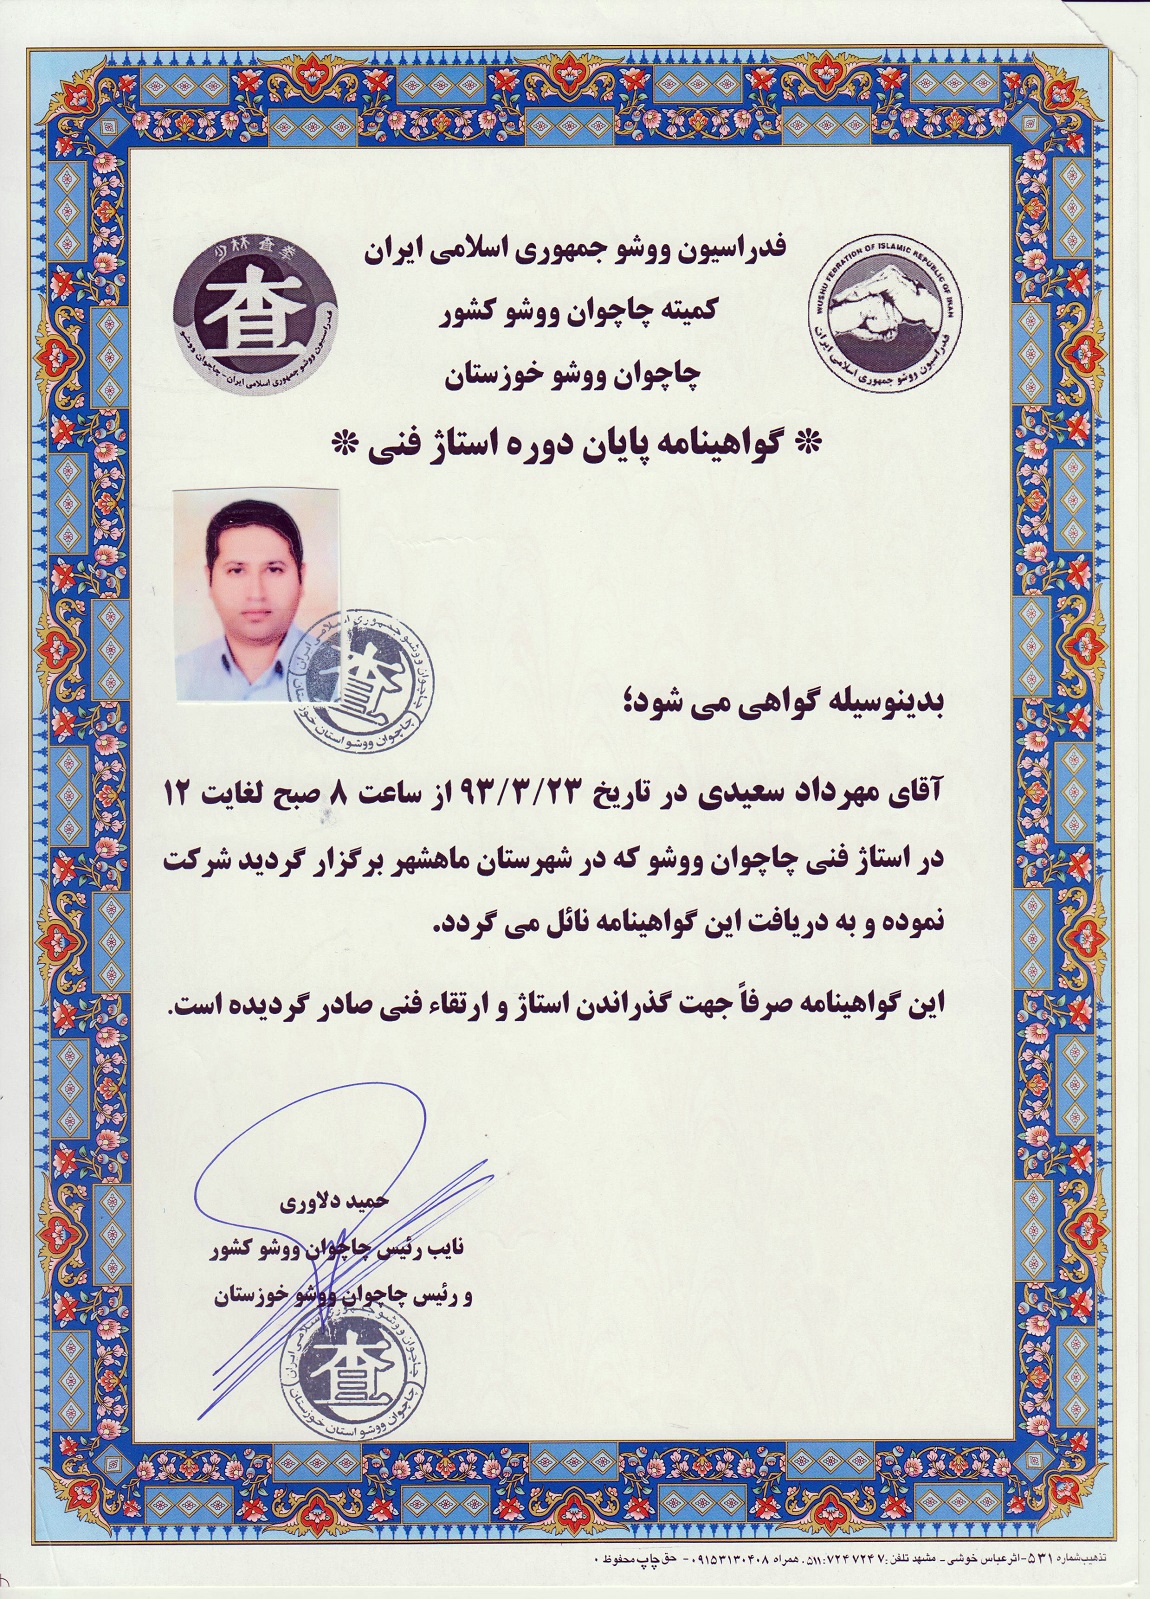 فدراسیون ووشو جمهوری اسلامی ایران
کمیته چاچوان ووشو کشور
چاچوان ووشو خوزستان
❊ گواهینامه پایان دوره استاژ فنی ❊
少林查拳
查
فدراسیون ووشو جمهوری اسلامی ایران - چاچوان ووشو
WUSHU FEDRATION OF ISLAMIC REPUBLIC OF IRAN
فدراسیون ووشو جمهوری اسلامی ایران
查
چاچوان ووشو استان خوزستان
بدینوسیله گواهی می شود؛
آقای مهرداد سعیدی در تاریخ ۹۳/۳/۲۳ از ساعت ۸ صبح لغایت ۱۲
در استاژ فنی چاچوان ووشو که در شهرستان ماهشهر برگزار گردید شرکت
نموده و به دریافت این گواهینامه نائل می گردد.
این گواهینامه صرفاً جهت گذراندن استاژ و ارتقاء فنی صادر گردیده است.
حمید دلاوری
نایب رئیس چاچوان ووشو کشور
و رئیس چاچوان ووشو خوزستان
查
چاچوان ووشو استان خوزستان
تذهیب شماره ۵۳۱- اثر عباس خوشی - مشهد تلفن: ۷۲۴۷۲۴۷ :۵۱۱. همراه ۰۹۱۵۳۱۳۰۴۰۸ - حق چاپ محفوظ ۰